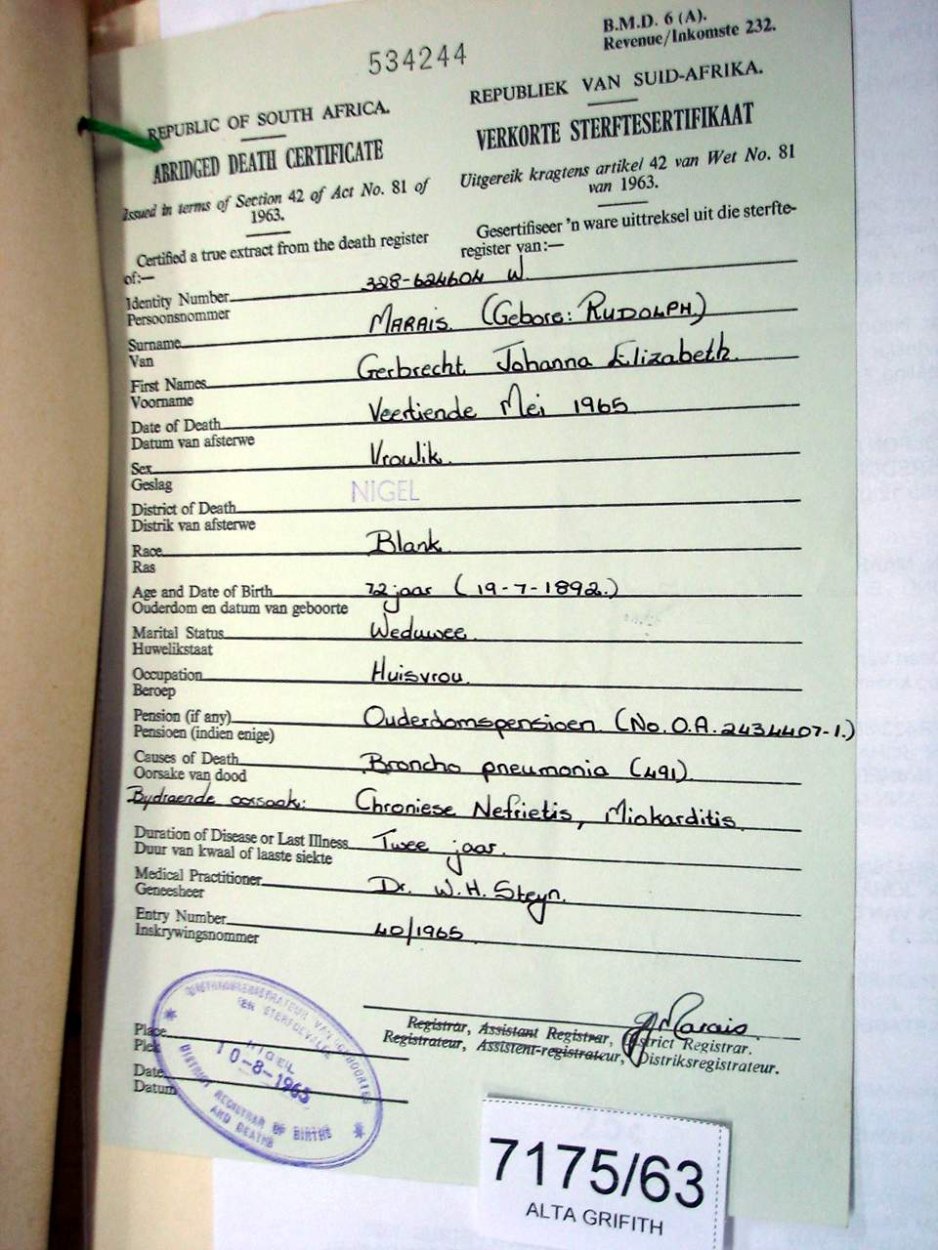 B.M.D. 6 (A).
Revenue/Inkomste 232.
534244
REPUBLIC OF SOUTH AFRICA.
ABRIDGED DEATH CERTIFICATE
Issued in terms of Section 42 of Act No. 81 of
1963.
Certified a true extract from the death register
of:—
REPUBLIEK VAN SUID-AFRIKA.
VERKORTE STERFTESERTIFIKAAT
Uitgereik kragtens artikel 42 van Wet No. 81
van 1963.
Gesertifiseer 'n ware uittreksel uit die sterfte-
register van:—
Identity Number 328-624604 W
Persoonsnommer
Surname MARAIS. (Gebore: RUDOLPH.)
Van
First Names Gerbrecht Johanna Elizabeth
Voorname
Date of Death Veertiende Mei 1965
Datum van afsterwe
Sex Vroulik.
Geslag
District of Death NIGEL
Distrik van afsterwe
Race Blank
Ras
Age and Date of Birth 72 jaar (19-7-1892.)
Ouderdom en datum van geboorte
Marital Status Weduwee.
Huwelikstaat
Occupation Huisvrou.
Beroep
Pension (if any) Ouderdomspensioen. (No. O.A. 2434407-1.)
Pensioen (indien enige)
Causes of Death Broncho pneumonia (491).
Oorsake van dood
Bydraende oorsaak: Chroniese Nefrietis, Miokarditis.
Duration of Disease or Last Illness Twee jaar.
Duur van kwaal of laaste siekte
Medical Practitioner Dr. W.H. Steyn.
Geneesheer
Entry Number 40/1965
Inskrywingsnommer
Marais
Registrar, Assistant Registrar, District Registrar.
Registrateur, Assistent-registrateur, Distriksregistrateur.
Place
Plek
Date
Datum
DISTRIKSREGISTRATEUR VAN GEBOORTES
EN STERFGEVALLE
NIGEL
10-8-1965
DISTRICT REGISTRAR OF BIRTHS
AND DEATHS
7175/63
ALTA GRIFITH